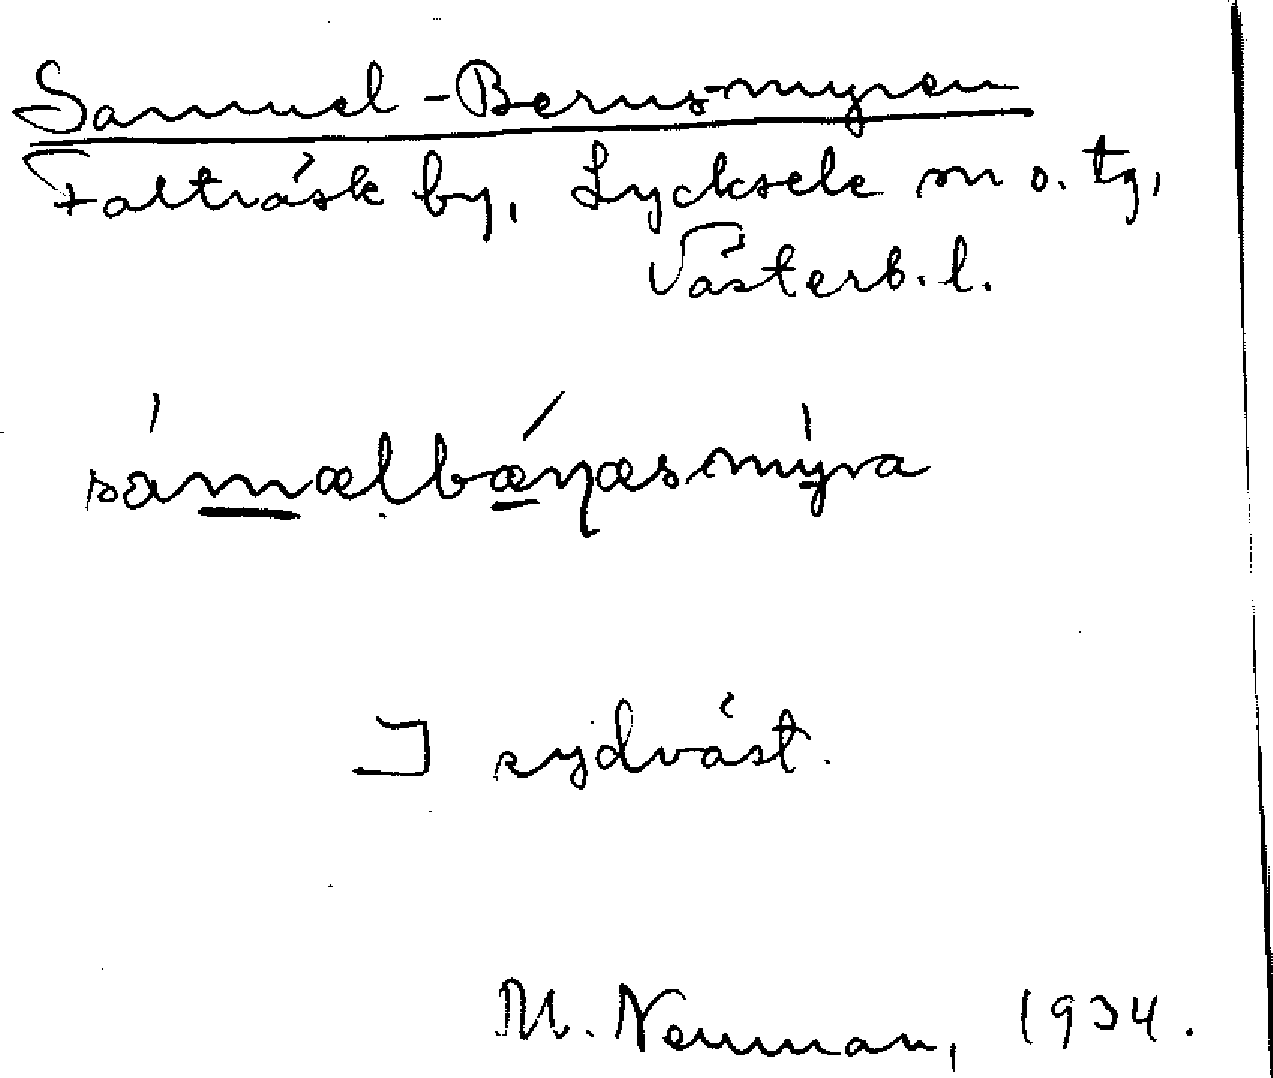 Samuel-Berus-myren
Falträsk by, Lycksele sn o. tg,
Västerb. l.
sámælbæ̀ŋæsmýra
I sydväst.
M. Neuman, 1934.